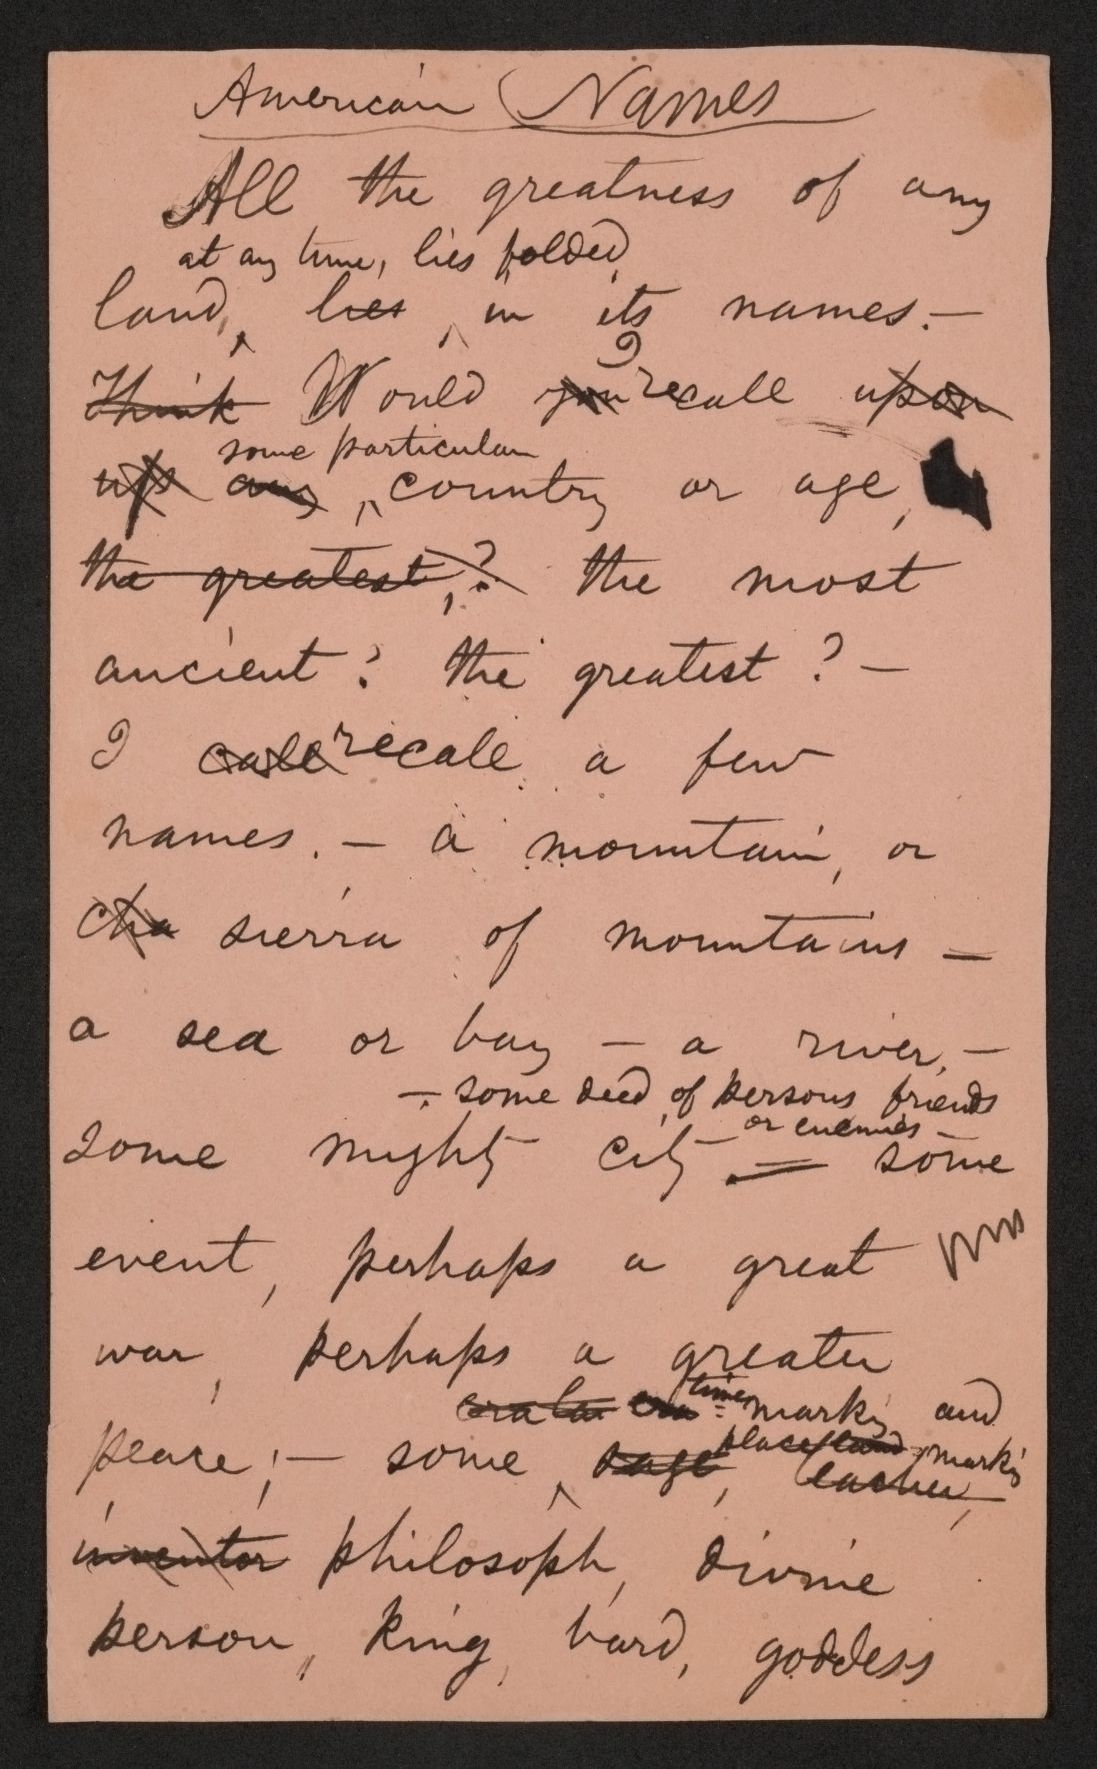 American Names
All the greatness of any
at any time, lies folded,
land, lies in its names.—
I
Think Would you recall upon
some particular
up any country or age,
the greatest,? the most
ancient? the greatest?—
I call recall a few
names.— a mountain, or
cha sierra of mountains —
a sea or bay — a river,—
— some deed of persons friends
or enemies —
some mighty city — some
event, perhaps a great
war, perhaps a greater
time-marks and
place land-marks
peace;— some sage, teacher,
inventor philosoph, divine
person, king, bard, goddess